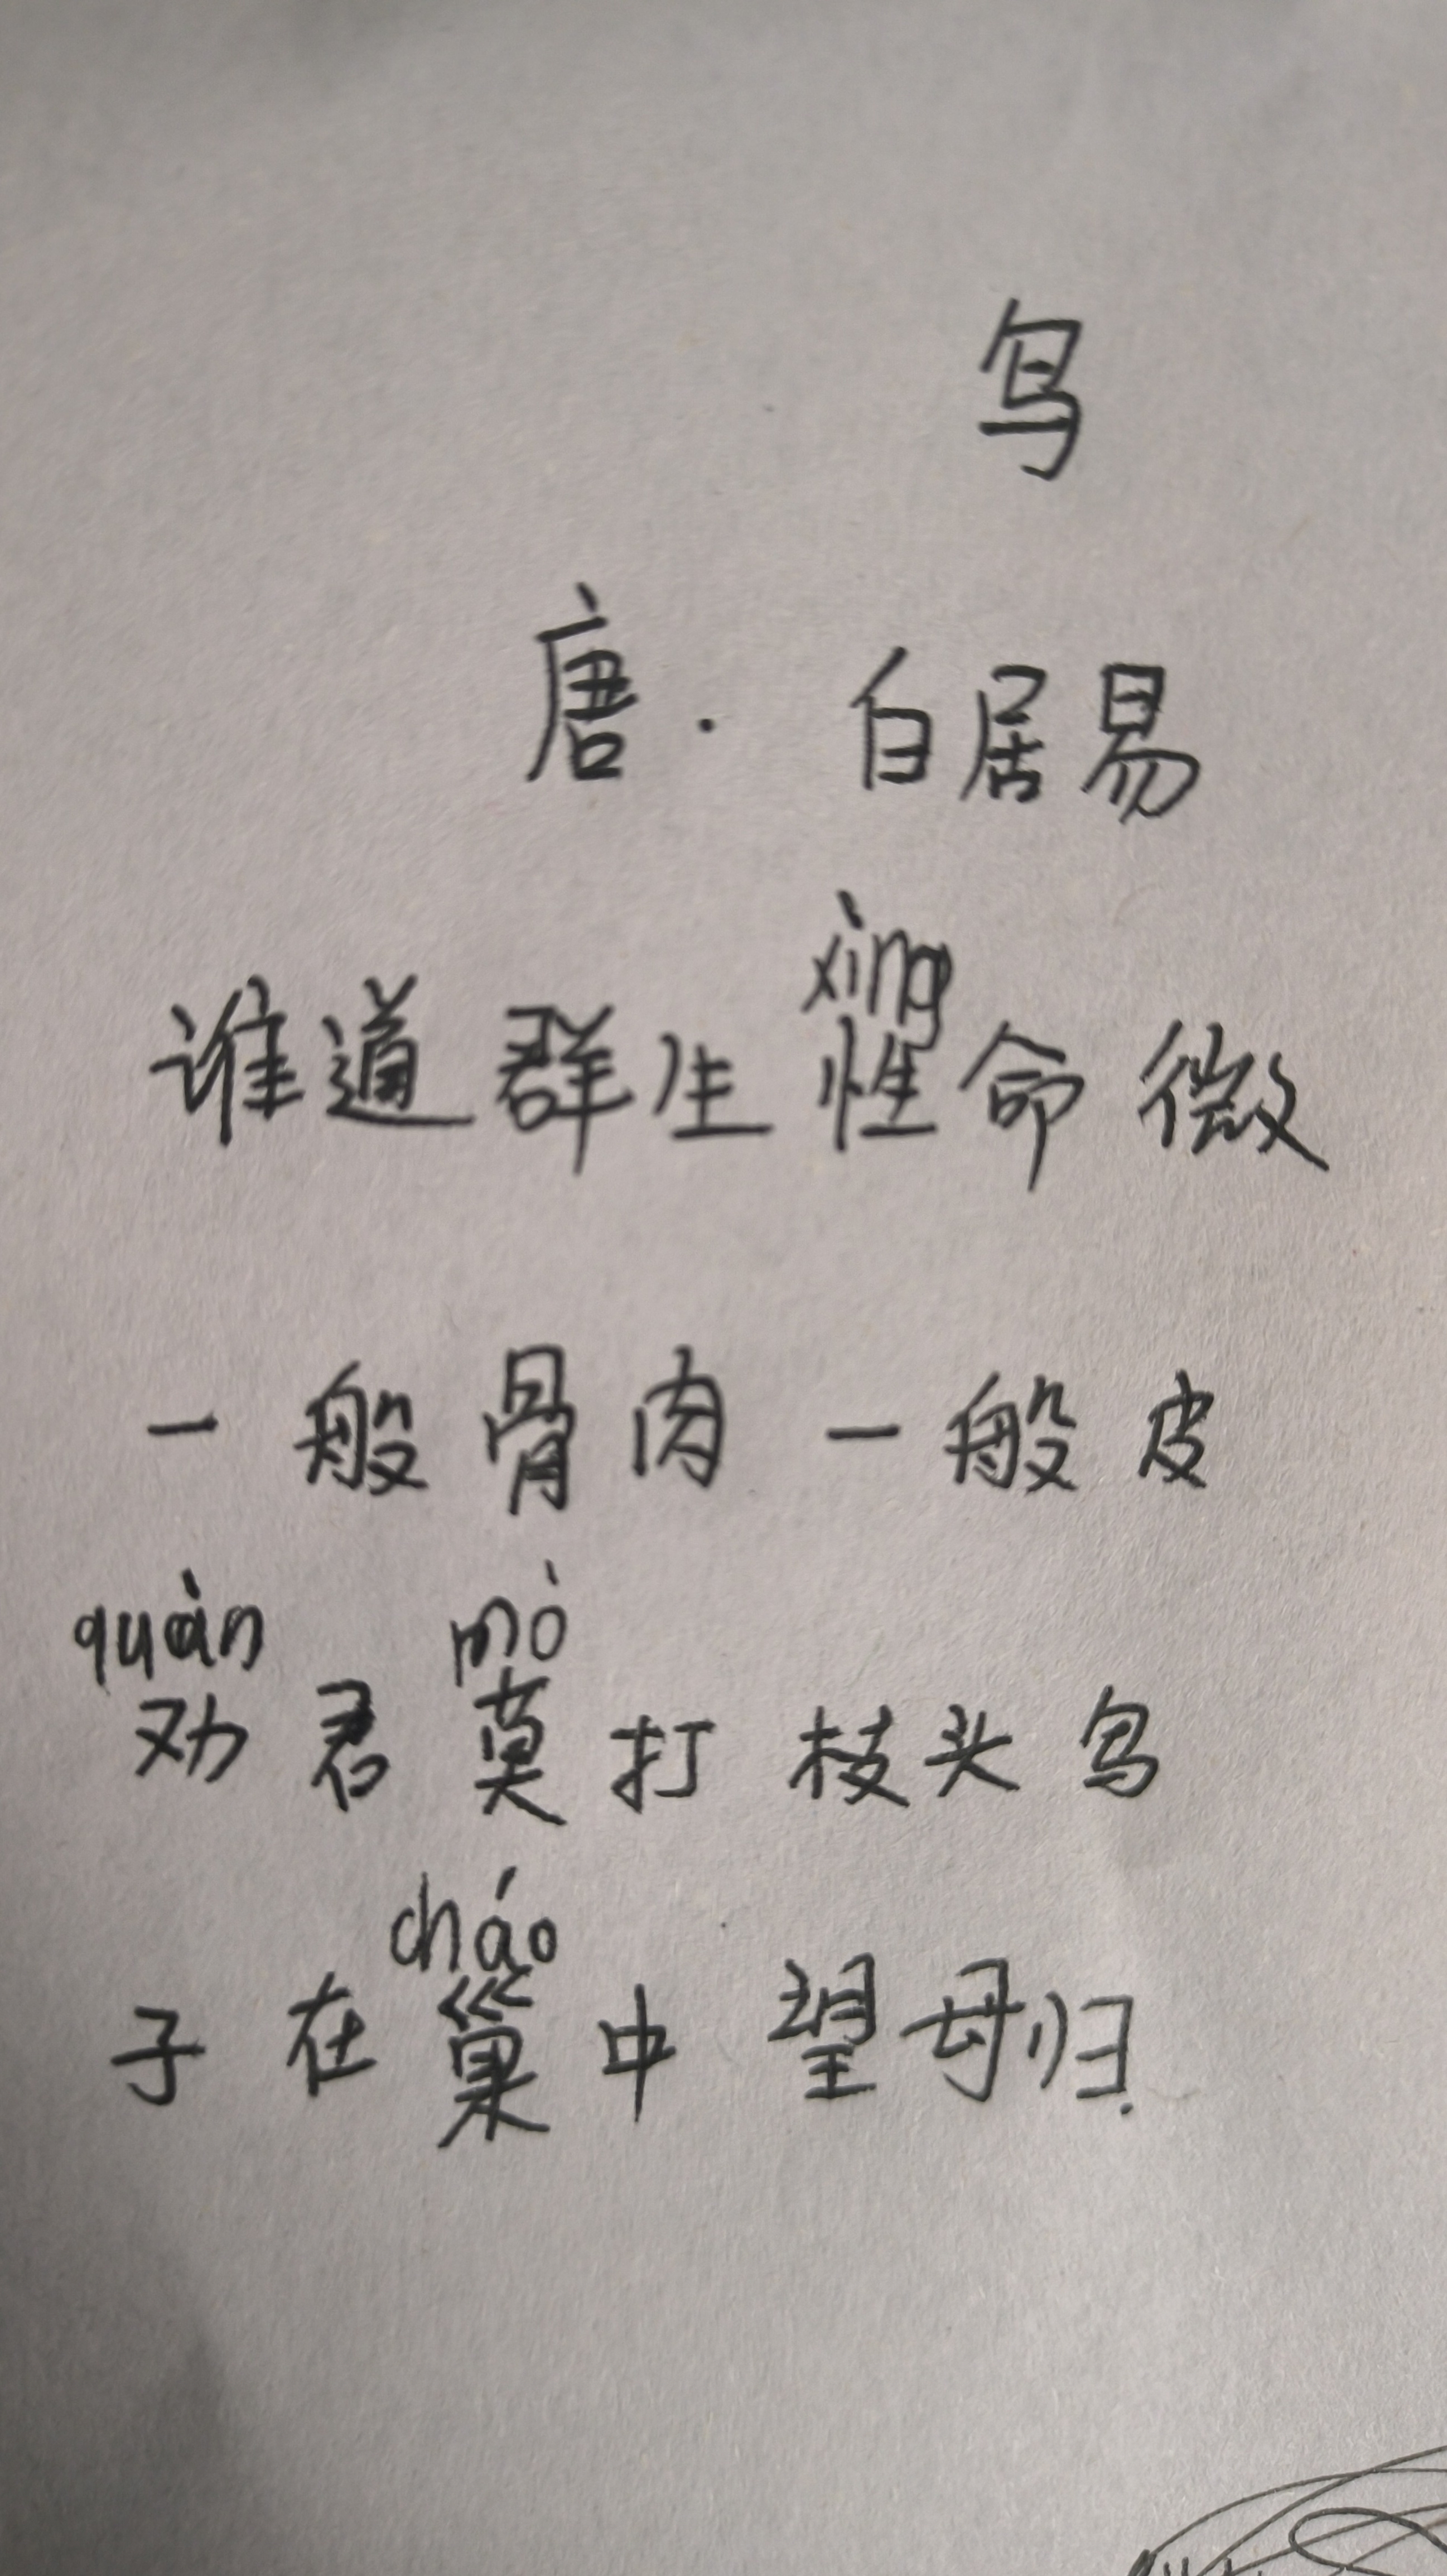 鸟
唐. 白居易
xìng
谁道群生性命微
一般骨肉一般皮
quàn mò
劝君莫打枝头鸟
cháo
子在巢中望母归.